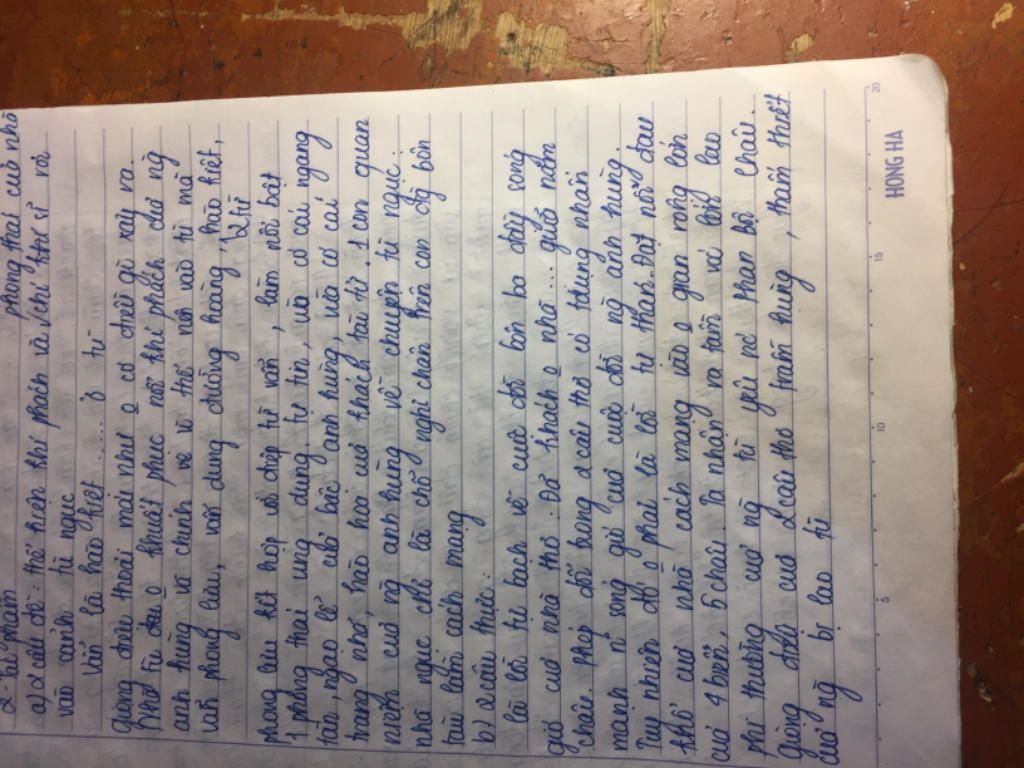 2- tác phẩm
a) 2 câu đề: thể hiện khí phách và phong thái của nhà
chí khí sĩ rơi
vào cảnh tù ngục
Vẫn là hào kiệt ..... ở tù
Giọng điệu thoải mái như o có chuyện gì xảy ra.
Nhà tù o khuất phục nổi khí phách của ng
anh hùng và chính vì vì thế nên vào tù mà
vẫn phong lưu, vẫn dung đường hoàng, hào kiệt,
2 từ
phong lưu kết hợp vs điệp từ vẫn, làm nổi bật
1 phong thái ung dung tự tin, vừa có cái ngang
tàn, ngạo lổ của bậc anh hùng, vừa có cái
trang nhã, hào hoa của khách tài tử. 1 con quan
niệm của ng anh hùng về chuyện tù ngục:
nhà ngục chỉ là chỗ nghỉ chân trên con đg bôn
tẩu làm cách mạng
b) 2 câu thực:
là lời tự bạch về cuộc đời bôn ba đầy sóng
gió của nhà thơ. Đó khách o nhà ... giữa năm
châu. phép đối trong 2 câu thơ có tdụng nhấn
mạnh n~ sóng gió của cuộc đời ng anh hùng.
Tuy nhiên đó o phải là lời tự than. Đặt nỗi đau
khổ của nhà cách mạng vào o gian rộng lớn
của 4 biển, 5 châu. Ta nhận ra tầm vóc lớn lao
phi thường của ng tù yêu nc Phan Bội Châu.
Giọng điệu của 2 câu thơ trầm hùng, thấm thiết
của ng bị lao tù
5
10
15
20
HONG HA